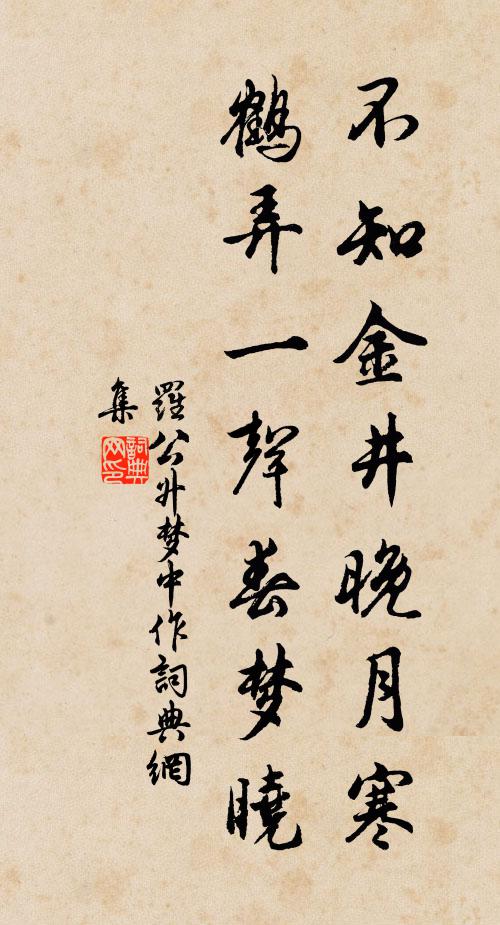 不知金井晚月寒
鶴弄一聲春梦曉
羅公升梦中作詞典網
集
詞典网印